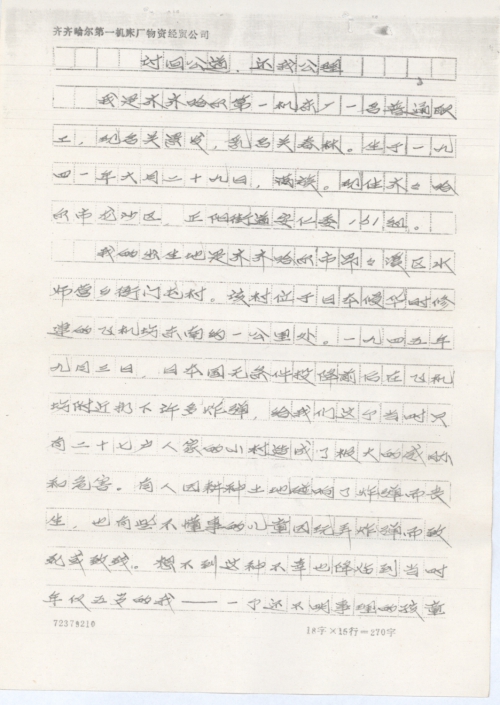 齐齐哈尔第一机床厂物资经贸公司
讨回公道、还我公理
我是齐齐哈尔第一机床厂一名普通职
工，现名关 乳名关春 。生于一九
四一年六月二十九日，满族。现住齐々哈
尔市龙沙区，正阳街道安仁委 组。
我的出生地是齐齐哈尔市昂々溪区水
师营乡衙门屯村。该村位于日本侵华时修
建的飞机场东南的一公里处。一九四五年
九月三日，日本国无条件投降前后在飞机
场附近扔下许多炸弹，给我们这个当时只
有二十七户人家的小村造成了极大的威胁
和危害。有人因耕种土地碰响了炸弹而丧
生，也有些不懂事的儿童因玩弄炸弹而致
死或致残。想不到这种不幸也降临到当时
年仅五岁的我——一个还不明事理的孩童
72378210
18字×15行=270字